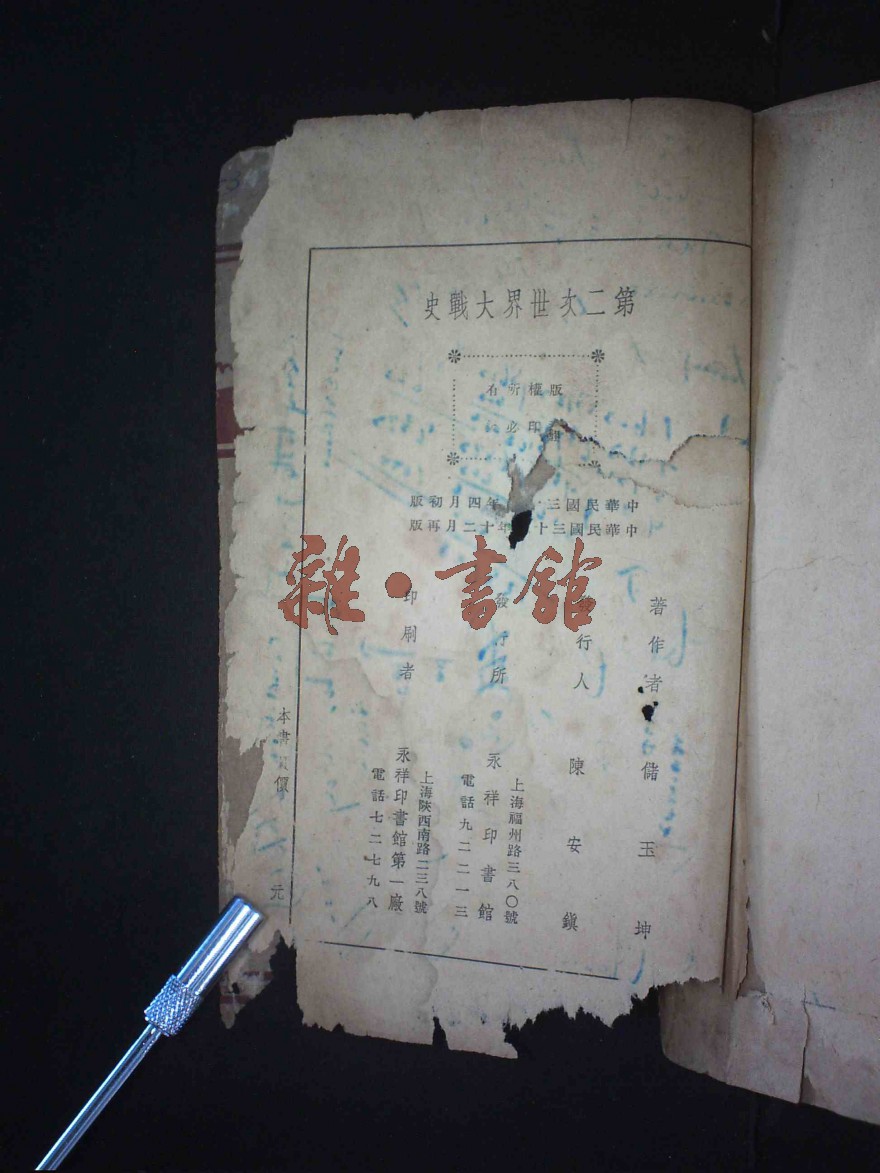 第二次世界大戰史
版權所有
必印
中華民國三 年四月初版
中華民國三十 年十二月再版
著作者 儲玉坤
發行人 陳安鎮
發行所 永祥印書館
上海福州路三八〇號
電話九二二一三
印刷者 永祥印書館第一廠
上海陝西南路二三八號
電話七二七九八
本書 價 元
雜·書館